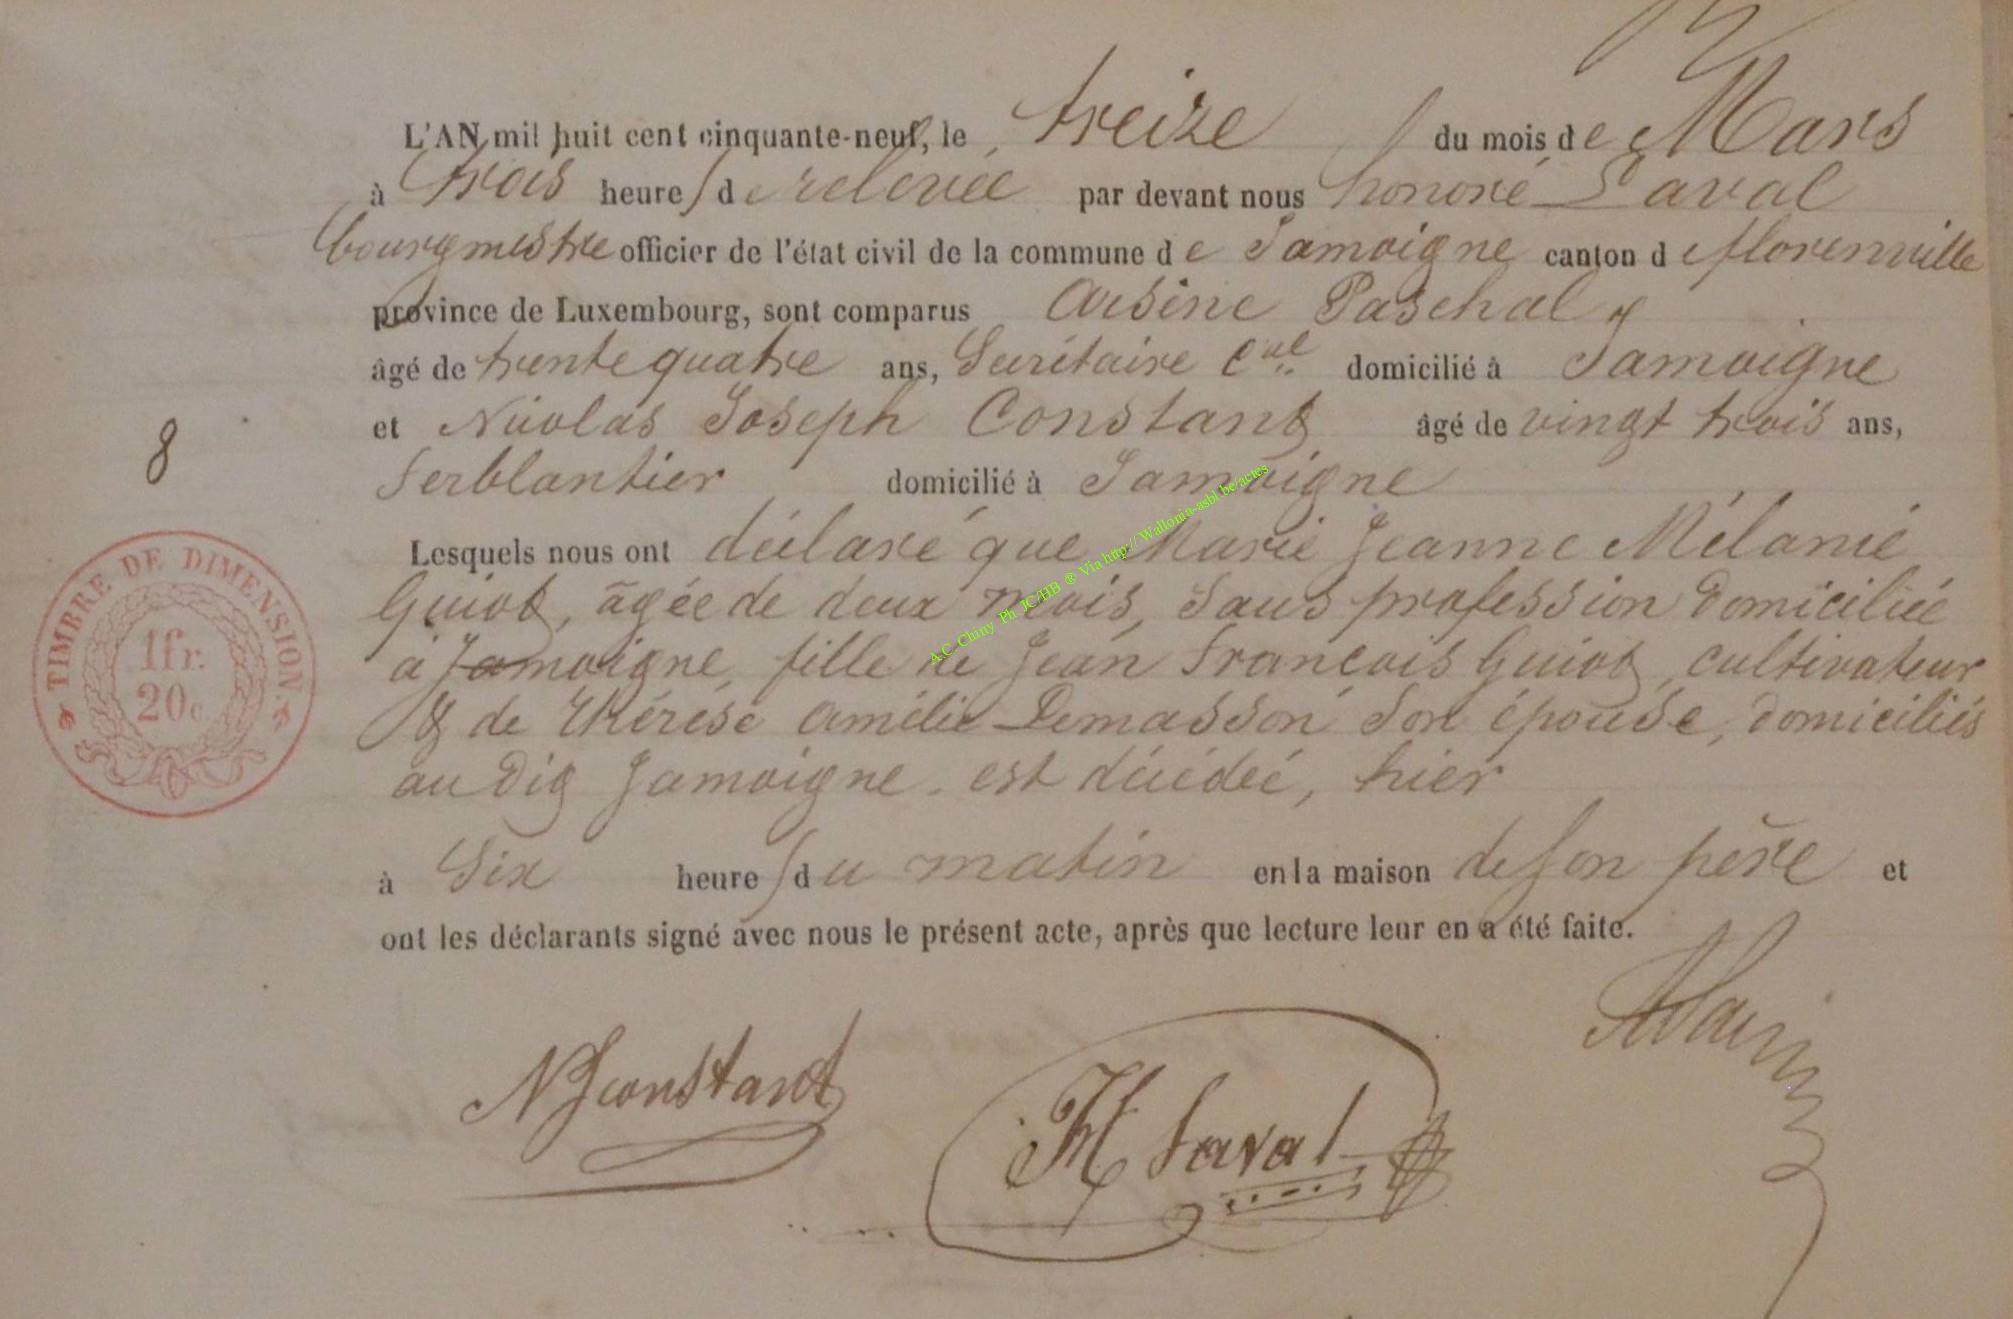 L'AN mil huit cent cinquante-neuf, le treize du mois de Mars
à trois heures de relevée par devant nous honoré Laval
bourgmestre officier de l'état civil de la commune de Jamoigne canton de florenville
province de Luxembourg, sont comparus Arsène Paschal
âgé de trente quatre ans, Secrétaire Cal domicilié à Jamoigne
et Nicolas Joseph Constant âgé de vingt trois ans,
8
ferblantier domicilié à Jamoigne
Lesquels nous ont déclaré que Marie Jeanne Mélanie
Guiot, agée de deux mois, sans profession domiciliée
à Jamoigne, fille de Jean François Guiot, cultivateur
& de Thérèse Amélie Demasson son épouse, domiciliés
au dit Jamoigne. est décédée, hier
à Six heures du matin en la maison de son père et
ont les déclarants signé avec nous le présent acte, après que lecture leur en a été faite.
TIMBRE DE DIMENSION.
1fr.
20c
A.C. Chiny Ph JC/HB ® Via http://Wallonia-asbl.be/actes
NJconstant
H Laval